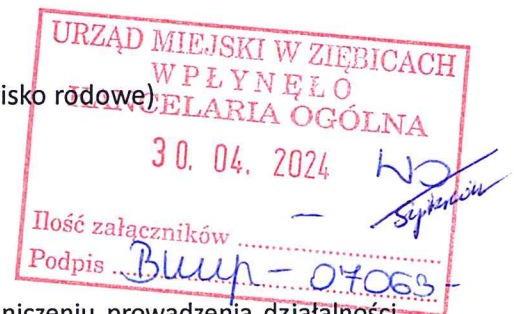 URZĄD MIEJSKI W ZIĘBICACH
WPŁYNĘŁO
isko rodowe)
KANCELARIA OGÓLNA
30. 04. 2024
Ilość załączników – 
Podpis - 07063 -
niczeniu prowadzenia działalności